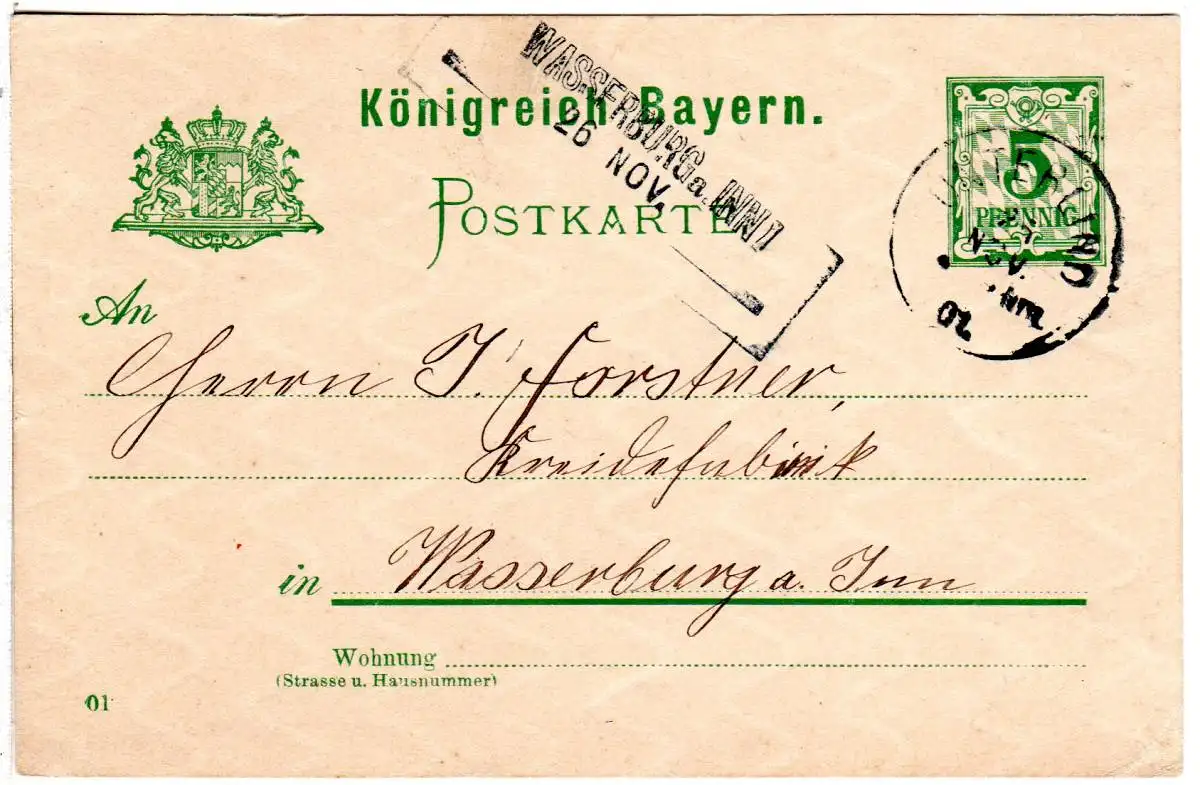 Königreich Bayern.
POSTKARTE
WASSERBURG a. INN I
26 NOV.
5
PFENNIG
NOV.
02
An
Herrn J. Forstner,
Kreidefabrik
in Wasserburg a. Inn
Wohnung
(Strasse u. Hausnummer)
01